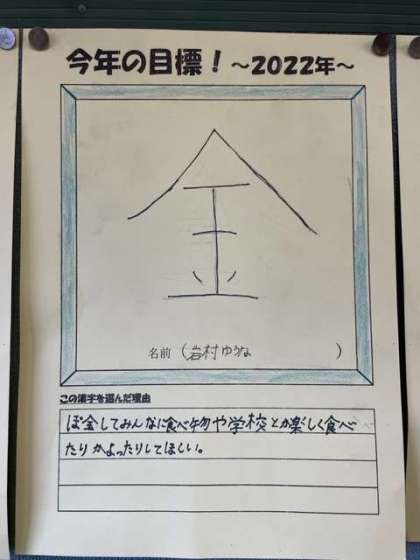 今年の目標！～2022年～
金
名前（岩村ゆうな）
この漢字を選んだ理由
ぼ金してみんなに食べ物や学校とか楽しく食べ
たりかよったりしてほしい。